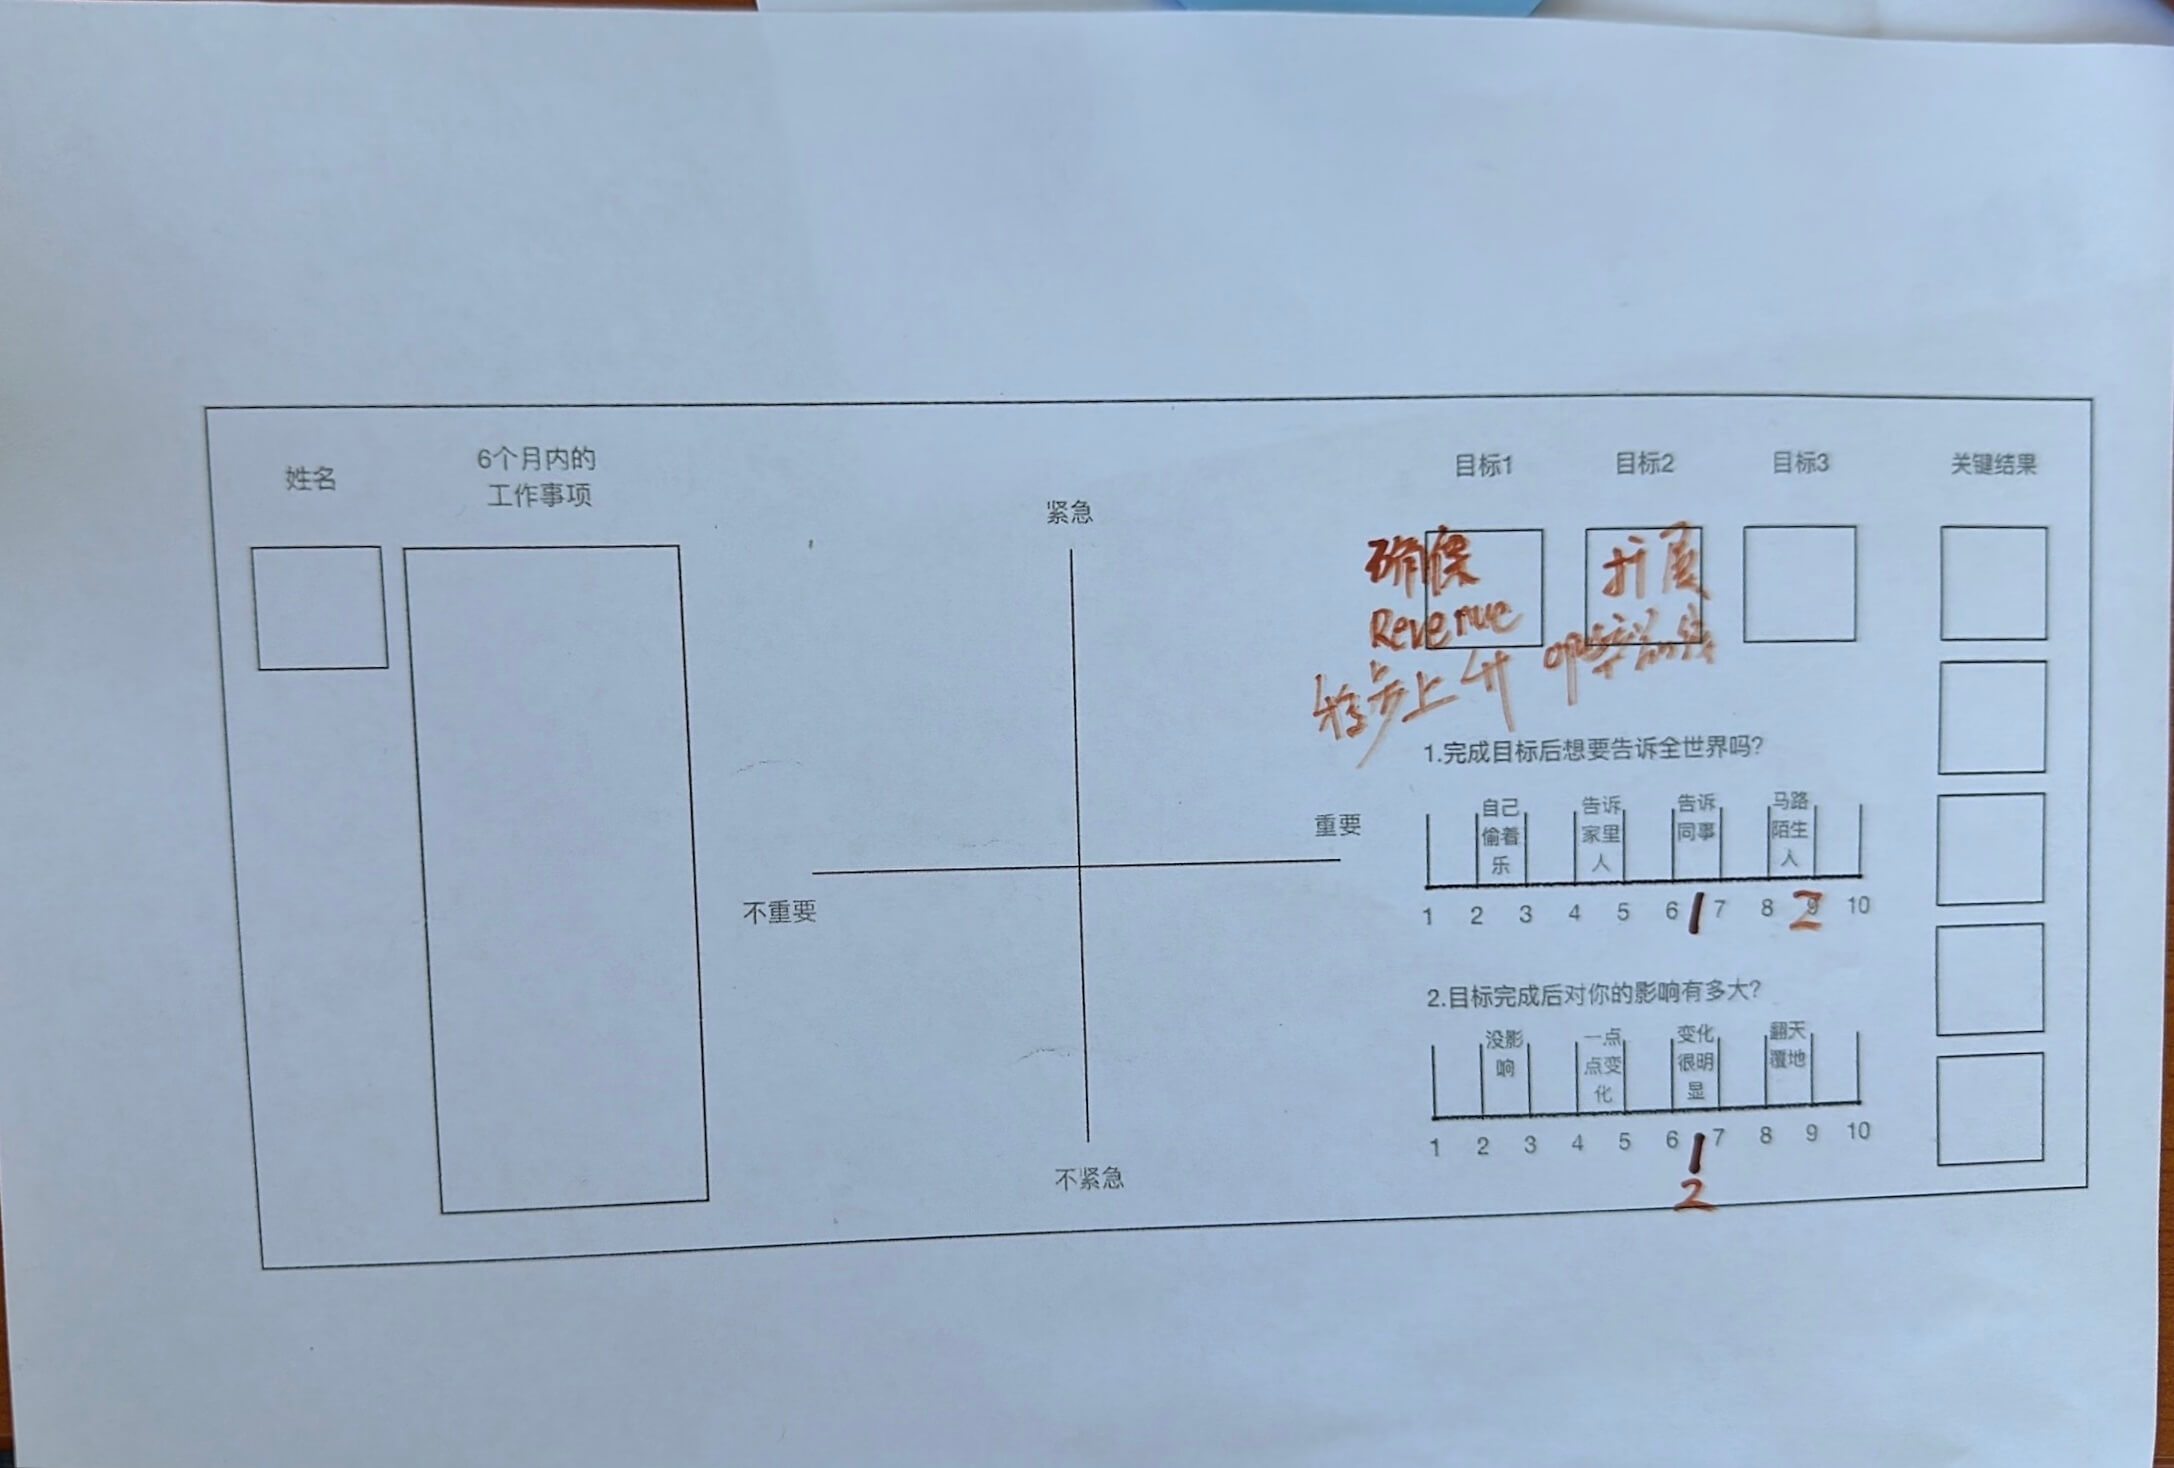 姓名
6个月内的
工作事项
紧急
重要
不重要
不紧急
目标1
目标2
目标3
关键结果
确保
Revenue
稳步上升
扩展
1.完成目标后想要告诉全世界吗?
自己
偷着
乐
告诉
家里
人
告诉
同事
马路
陌生
人
1 2 3 4 5 6 7 8 9 10
1 2
2.目标完成后对你的影响有多大?
没影
响
一点
点变
化
变化
很明
显
翻天
覆地
1 2 3 4 5 6 7 8 9 10
1
2